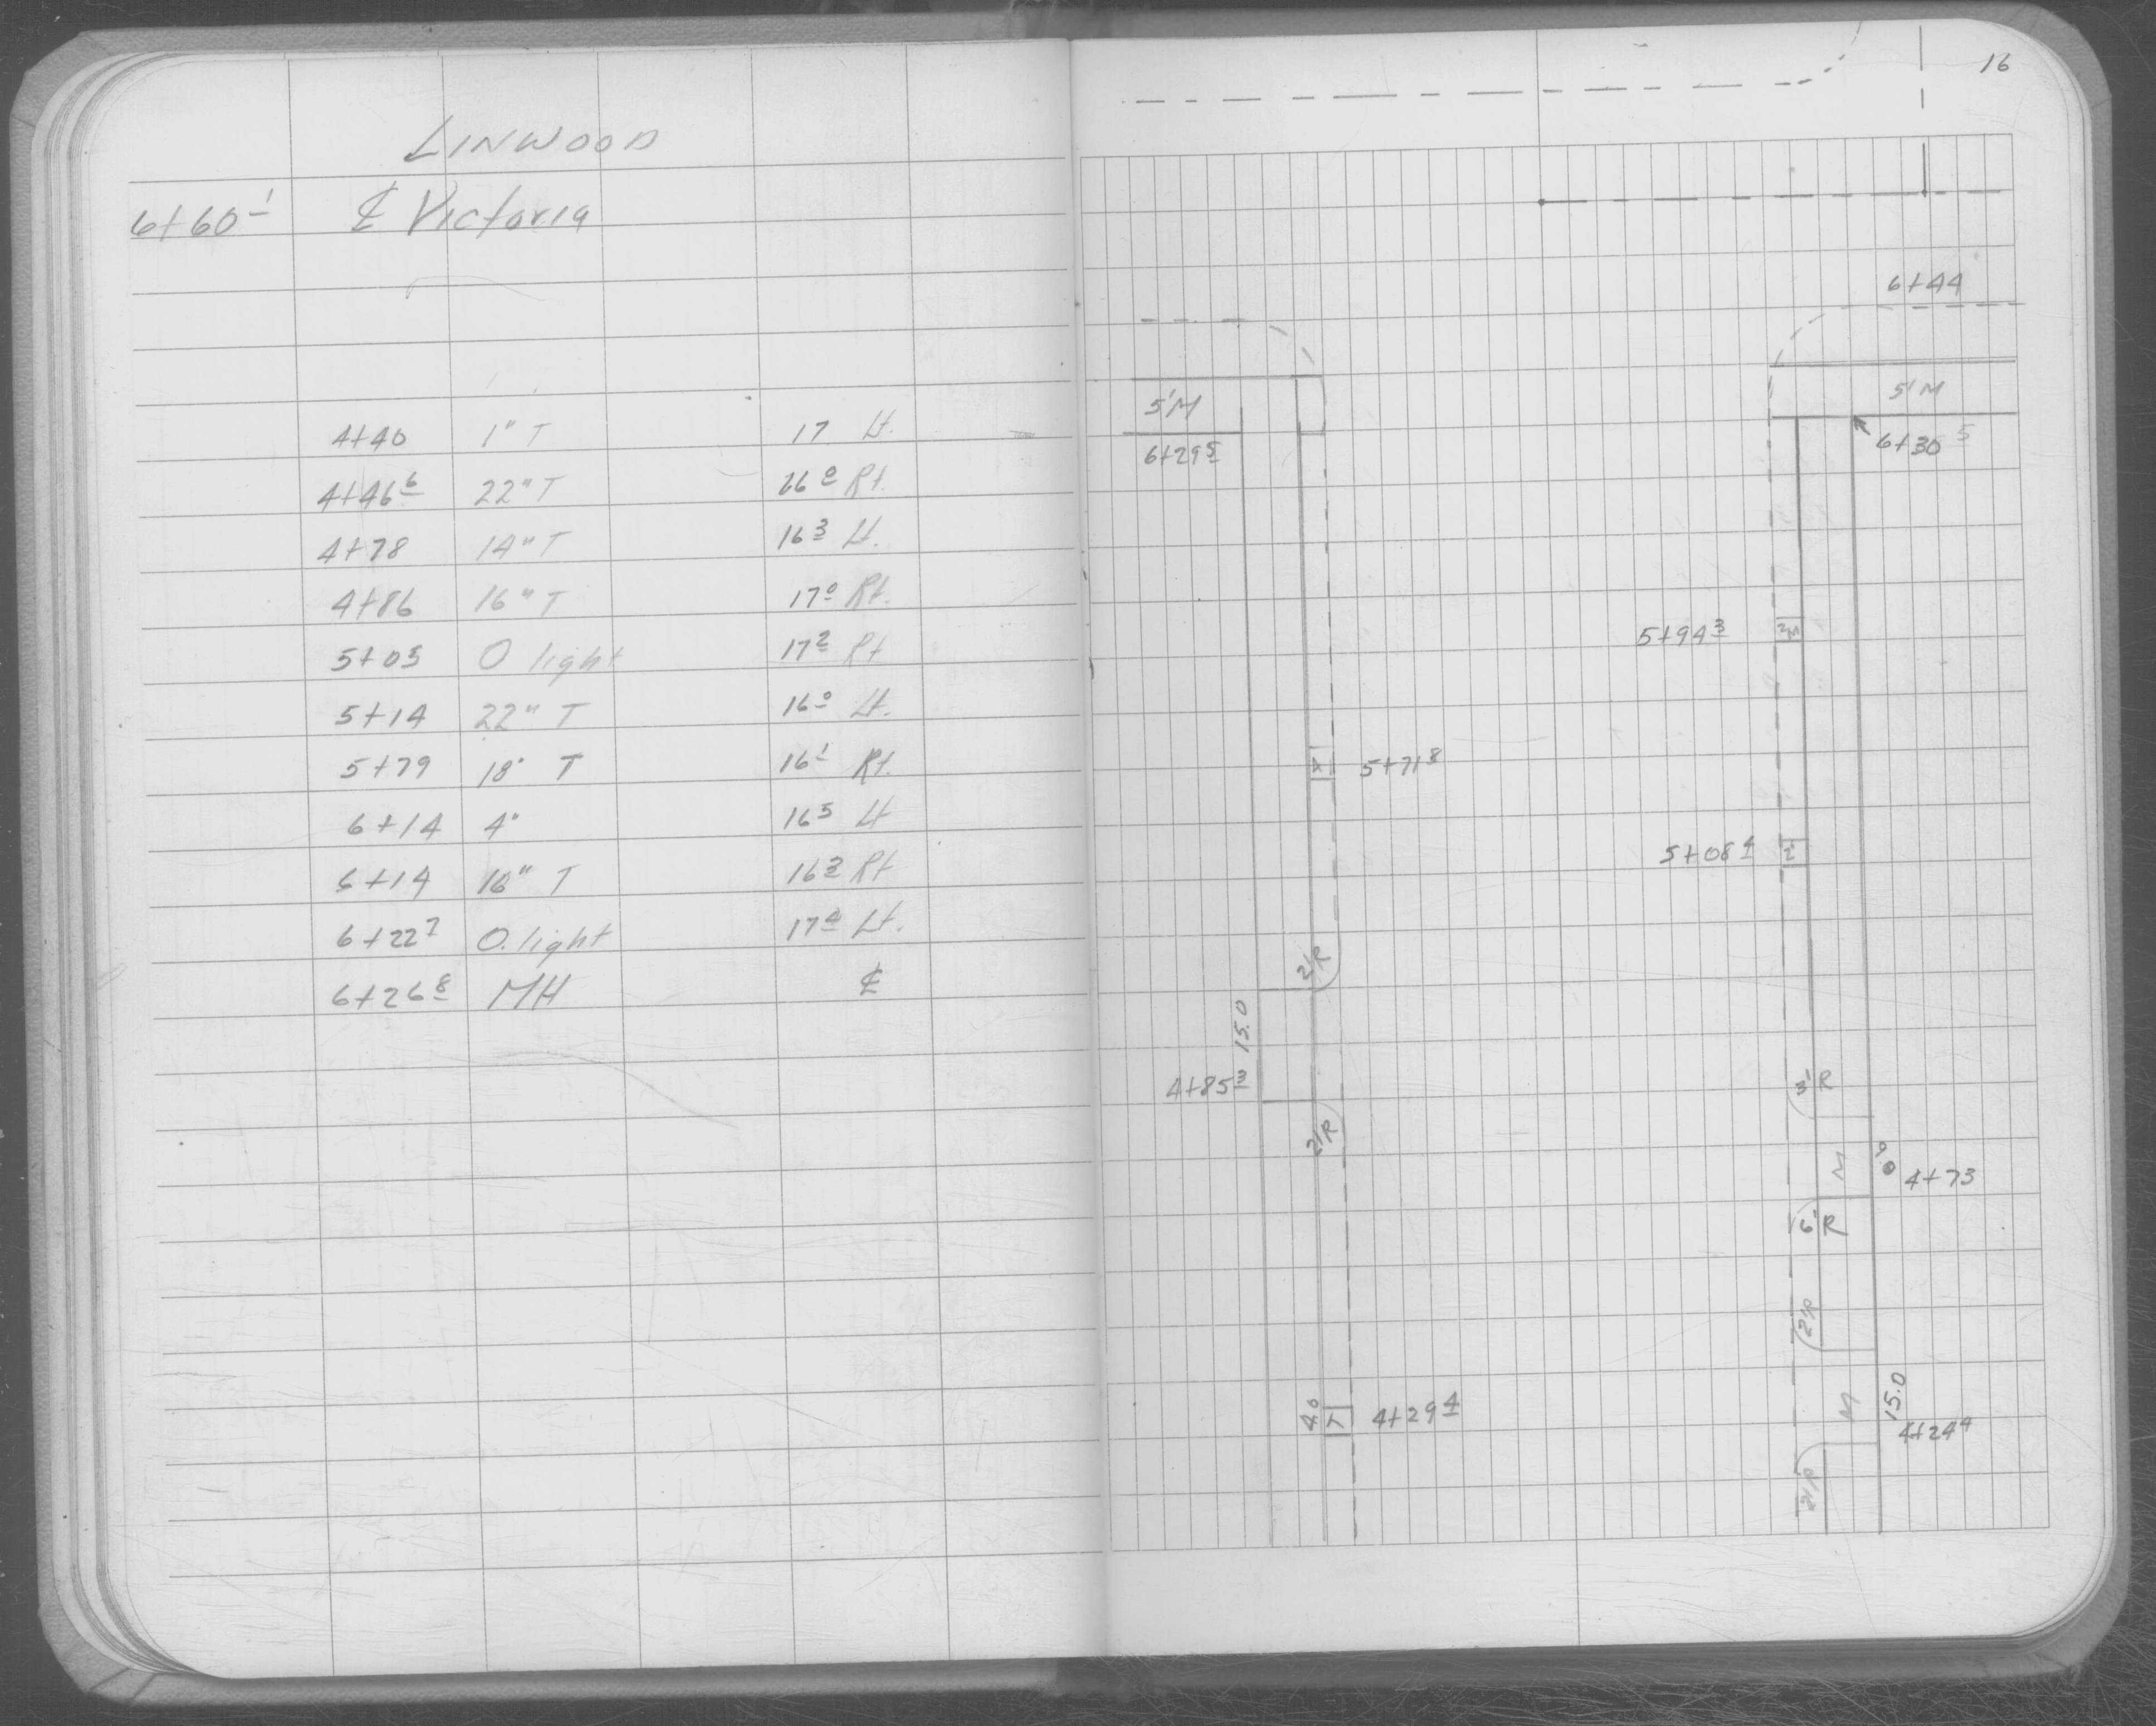 LINWOOD
6+60 1 ℄ Victoria
4+40 1" T 17 Lt.
4+46 6 22" T 16 0 Rt.
4+78 14" T 16 3 Lt.
4+86 16" T 17 0 Rt.
5+05 O light 17 2 Rt
5+14 22" T 16 0 Lt.
5+79 18" T 16 1 Rt.
6+14 4" 16 5 Lt
6+14 16" T 16 3 Rt
6+22 7 O. light 17 4 Lt.
6+26 8 MH ℄
16
6+44
5' M
5' M
6+29 5
6+30 5
5+94 3
5+71 8
5+08 4
2'R
15.0
4+85 3
3' R
2'R
M
4+73
6' R
2'R
4.0
4+29 4
M
15.0
4+24 4
2'R